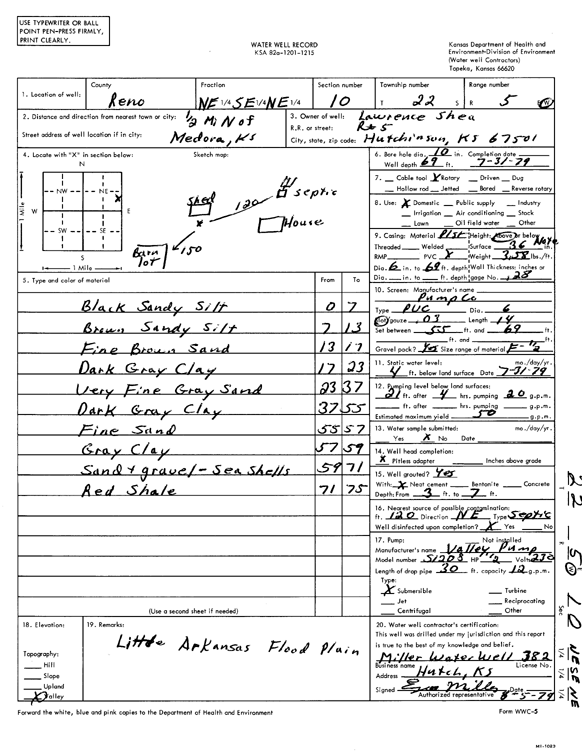 USE TYPEWRITER OR BALL
POINT PEN-PRESS FIRMLY,
PRINT CLEARLY.
WATER WELL RECORD
KSA 82a-1201-1215
Kansas Department of Health and
Environment-Division of Environment
(Water well Contractors)
Topeka, Kansas 66620
1. Location of well: County Reno Fraction NE 1/4 SE 1/4 NE 1/4 Section number 10 Township number T 22 S Range number R 5 W
2. Distance and direction from nearest town or city: 1/2 Mi N of
Street address of well location if in city: Medora, Ks
3. Owner of well: Lawrence Shea
R.R. or street: R#5
City, state, zip code: Hutchinson, KS 67501
4. Locate with "X" in section below: Sketch map:
N
NW NE X
W E
SW SE
S
1 Mile
1 Mile
Shed 120 septic
X House
Barn lot 150
5. Type and color of material From To
Black Sandy Silt 0 7
Brown Sandy Silt 7 13
Fine Brown Sand 13 17
Dark Gray Clay 17 23
Very Fine Gray Sand 23 37
Dark Gray Clay 37 55
Fine Sand 55 57
Gray Clay 57 59
Sand + gravel - Sea Shells 59 71
Red Shale 71 75
(Use a second sheet if needed)
6. Bore hole dia. 10 in. Completion date
Well depth 69 ft. 7-31-79
7. Cable tool X Rotary Driven Dug
Hollow rod Jetted Bored Reverse rotary
8. Use: X Domestic Public supply Industry
Irrigation Air conditioning Stock
Lawn Oil field water Other
9. Casing: Material Plst Height: Above or below
Threaded Welded Surface 36 in.
RMP PVC X Weight lbs./ft.
Dia. 6 in. to 69 ft. depth Wall Thickness: inches or
Dia. in. to ft. depth gage No. .25
10. Screen: Manufacturer's name
Pump Co
Type PVC Dia. 6
Slot/gauze .03 Length 14
Set between 55 ft. and 69 ft.
ft. and ft.
Gravel pack? Yes Size range of material F-1/2
11. Static water level: mo./day/yr.
4 ft. below land surface Date 7-31-79
12. Pumping level below land surfaces:
21 ft. after 4 hrs. pumping 20 g.p.m.
ft. after hrs. pumping g.p.m.
Estimated maximum yield 50 g.p.m.
13. Water sample submitted: mo./day/yr.
Yes X No Date
14. Well head completion:
X Pitless adapter Inches above grade
15. Well grouted? Yes
With: X Neat cement Bentonite Concrete
Depth: From 3 ft. to 7 ft.
16. Nearest source of possible contamination:
ft. 120 Direction NE Type Septic
Well disinfected upon completion? X Yes No
17. Pump: Not installed
Manufacturer's name Valley Pump
Model number S1203 HP 1/2 Volts 230
Length of drop pipe 30 ft. capacity 12 g.p.m.
Type:
X Submersible Turbine
Jet Reciprocating
Centrifugal Other
18. Elevation:
Topography:
Hill
Slope
Upland
X Valley
19. Remarks:
Little Arkansas Flood Plain
20. Water well contractor's certification:
This well was drilled under my jurisdiction and this report
is true to the best of my knowledge and belief.
Miller Water Well 382
Business name License No.
Address Hutch, KS
Signed Date 8-5-79
Authorized representative
Forward the white, blue and pink copies to the Department of Health and Environment
Form WWC-5
22 - 5 W 10 NE SE NE
Sec 1/4 1/4 1/4